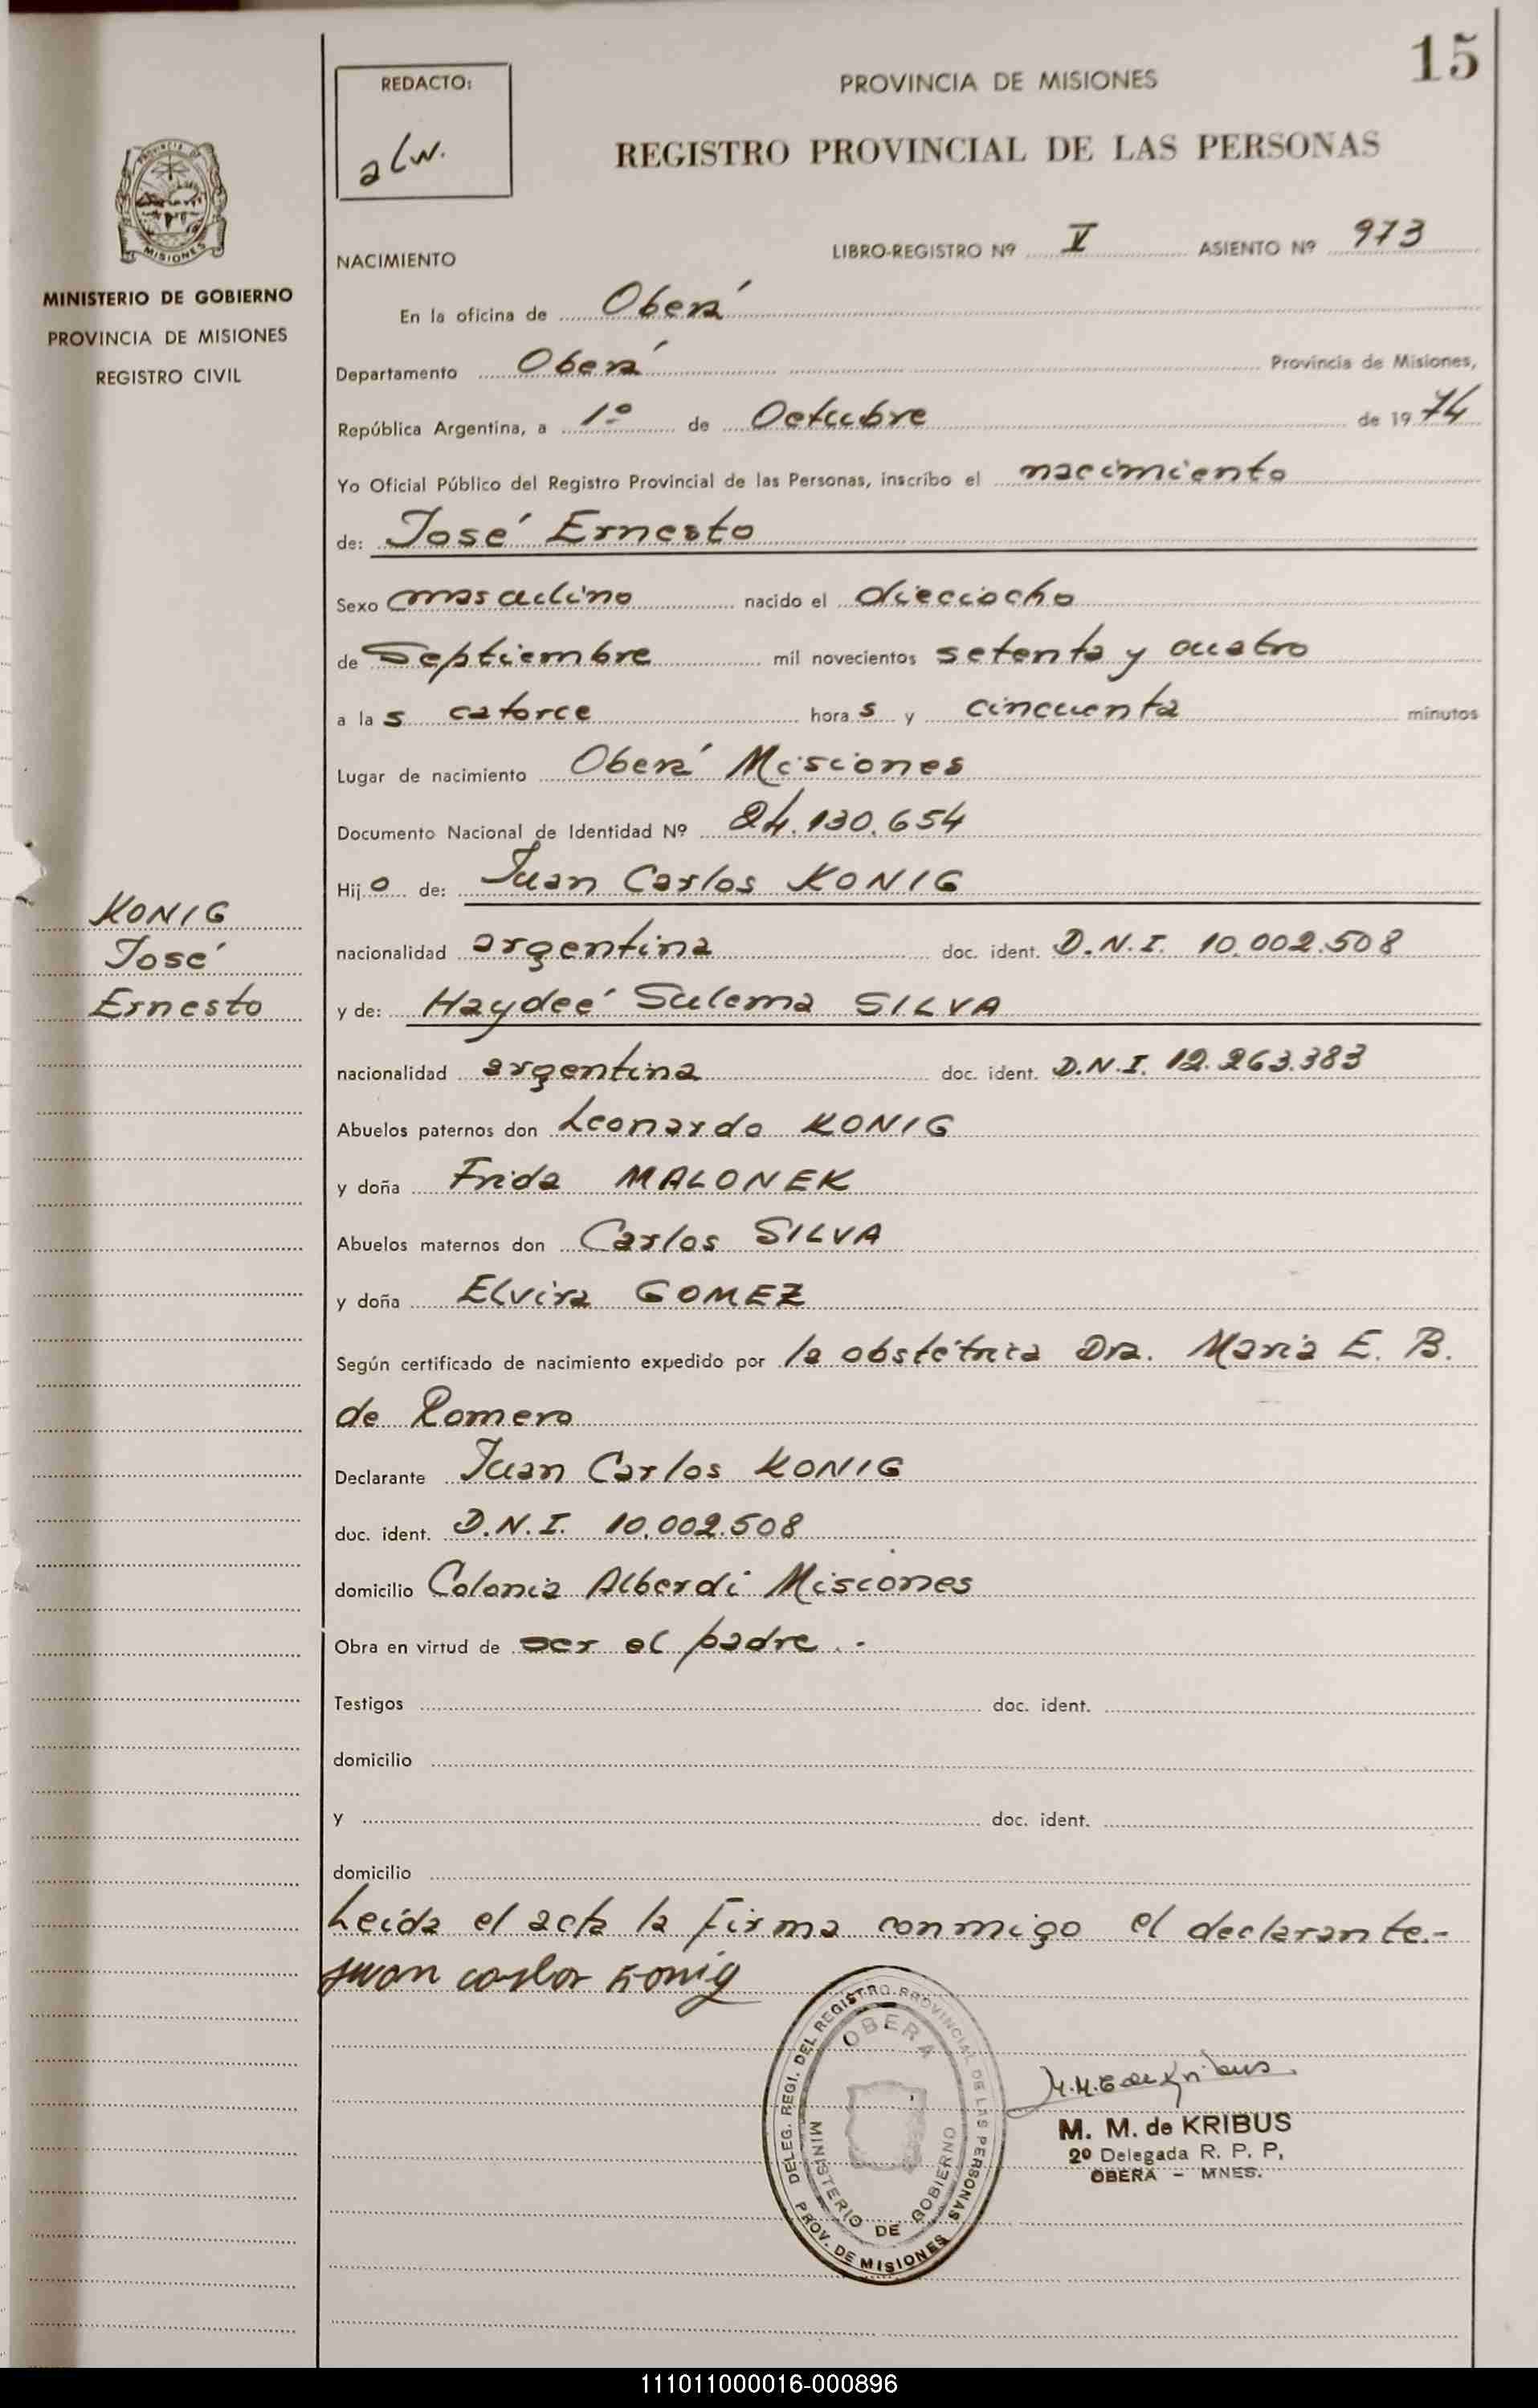 15
REDACTO:
alw.
PROVINCIA DE MISIONES
REGISTRO PROVINCIAL DE LAS PERSONAS
PROVINCIA DE
MISIONES
MINISTERIO DE GOBIERNO
PROVINCIA DE MISIONES
REGISTRO CIVIL
NACIMIENTO
LIBRO-REGISTRO Nº V ASIENTO Nº 973
En la oficina de Oberá
Departamento Oberá Provincia de Misiones,
República Argentina, a 1º de Octubre de 1974
Yo Oficial Público del Registro Provincial de las Personas, inscribo el nacimiento
de: José Ernesto
Sexo masculino nacido el dieciocho
de Septiembre mil novecientos setenta y cuatro
a las catorce horas y cincuenta minutos
Lugar de nacimiento Oberá Misiones
Documento Nacional de Identidad Nº 24.130.654
Hijo de: Juan Carlos KONIG
KONIG
José
Ernesto
nacionalidad argentina doc. ident. D.N.I. 10.002.508
y de: Haydeé Sulema SILVA
nacionalidad argentina doc. ident. D.N.I. 12.263.383
Abuelos paternos don Leonardo KONIG
y doña Frida MALONEK
Abuelos maternos don Carlos SILVA
y doña Elvira GOMEZ
Según certificado de nacimiento expedido por la obstétrica Dra. Maria E. B.
de Romero
Declarante Juan Carlos KONIG
doc. ident. D.N.I. 10.002.508
domicilio Colonia Alberdi Misiones
Obra en virtud de ser el padre.-
Testigos doc. ident.
domicilio
y doc. ident.
domicilio
Leída el acta la firma conmigo el declarante.-
Juan carlos Konig
DELEG. REGI. DEL REGISTRO PROVINCIAL DE LAS PERSONAS
OBERA
MINISTERIO DE GOBIERNO
PROV. DE MISIONES
M.M.E de Kribus
M. M. de KRIBUS
2º Delegada R. P. P,
OBERA - MNES.
111011000016-000896